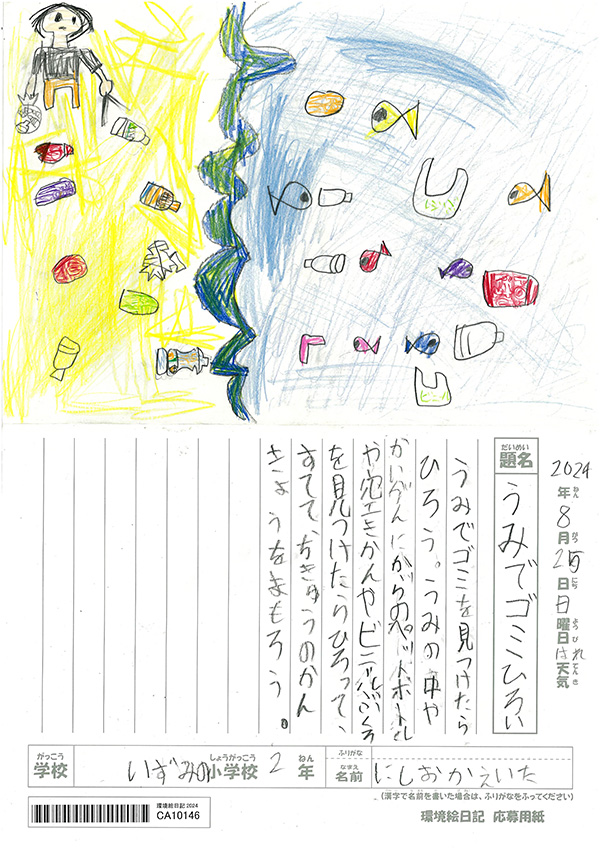 ビニール
ビニール
2024年8月25日日曜日はれ天気
ねん
がつ
にち
ようび
てんき
だいめい
題名
うみでゴミひろい
うみでゴミを見つけたら
ひろう。うみの中や
かいがんにからのペットボトル
や空きかんやビニールぶくろ
を見つけたらひろって、
すてて、ちきゅうのかん
きょうをまもろう。
がっこう
学校
いずみの小学校
しょうがっこう
2年
ねん
ふりがな
なまえ
名前
にしおかえいた
(漢字で名前を書いた場合は、ふりがなをふってください)
環境絵日記2024
CA10146
環境絵日記 応募用紙